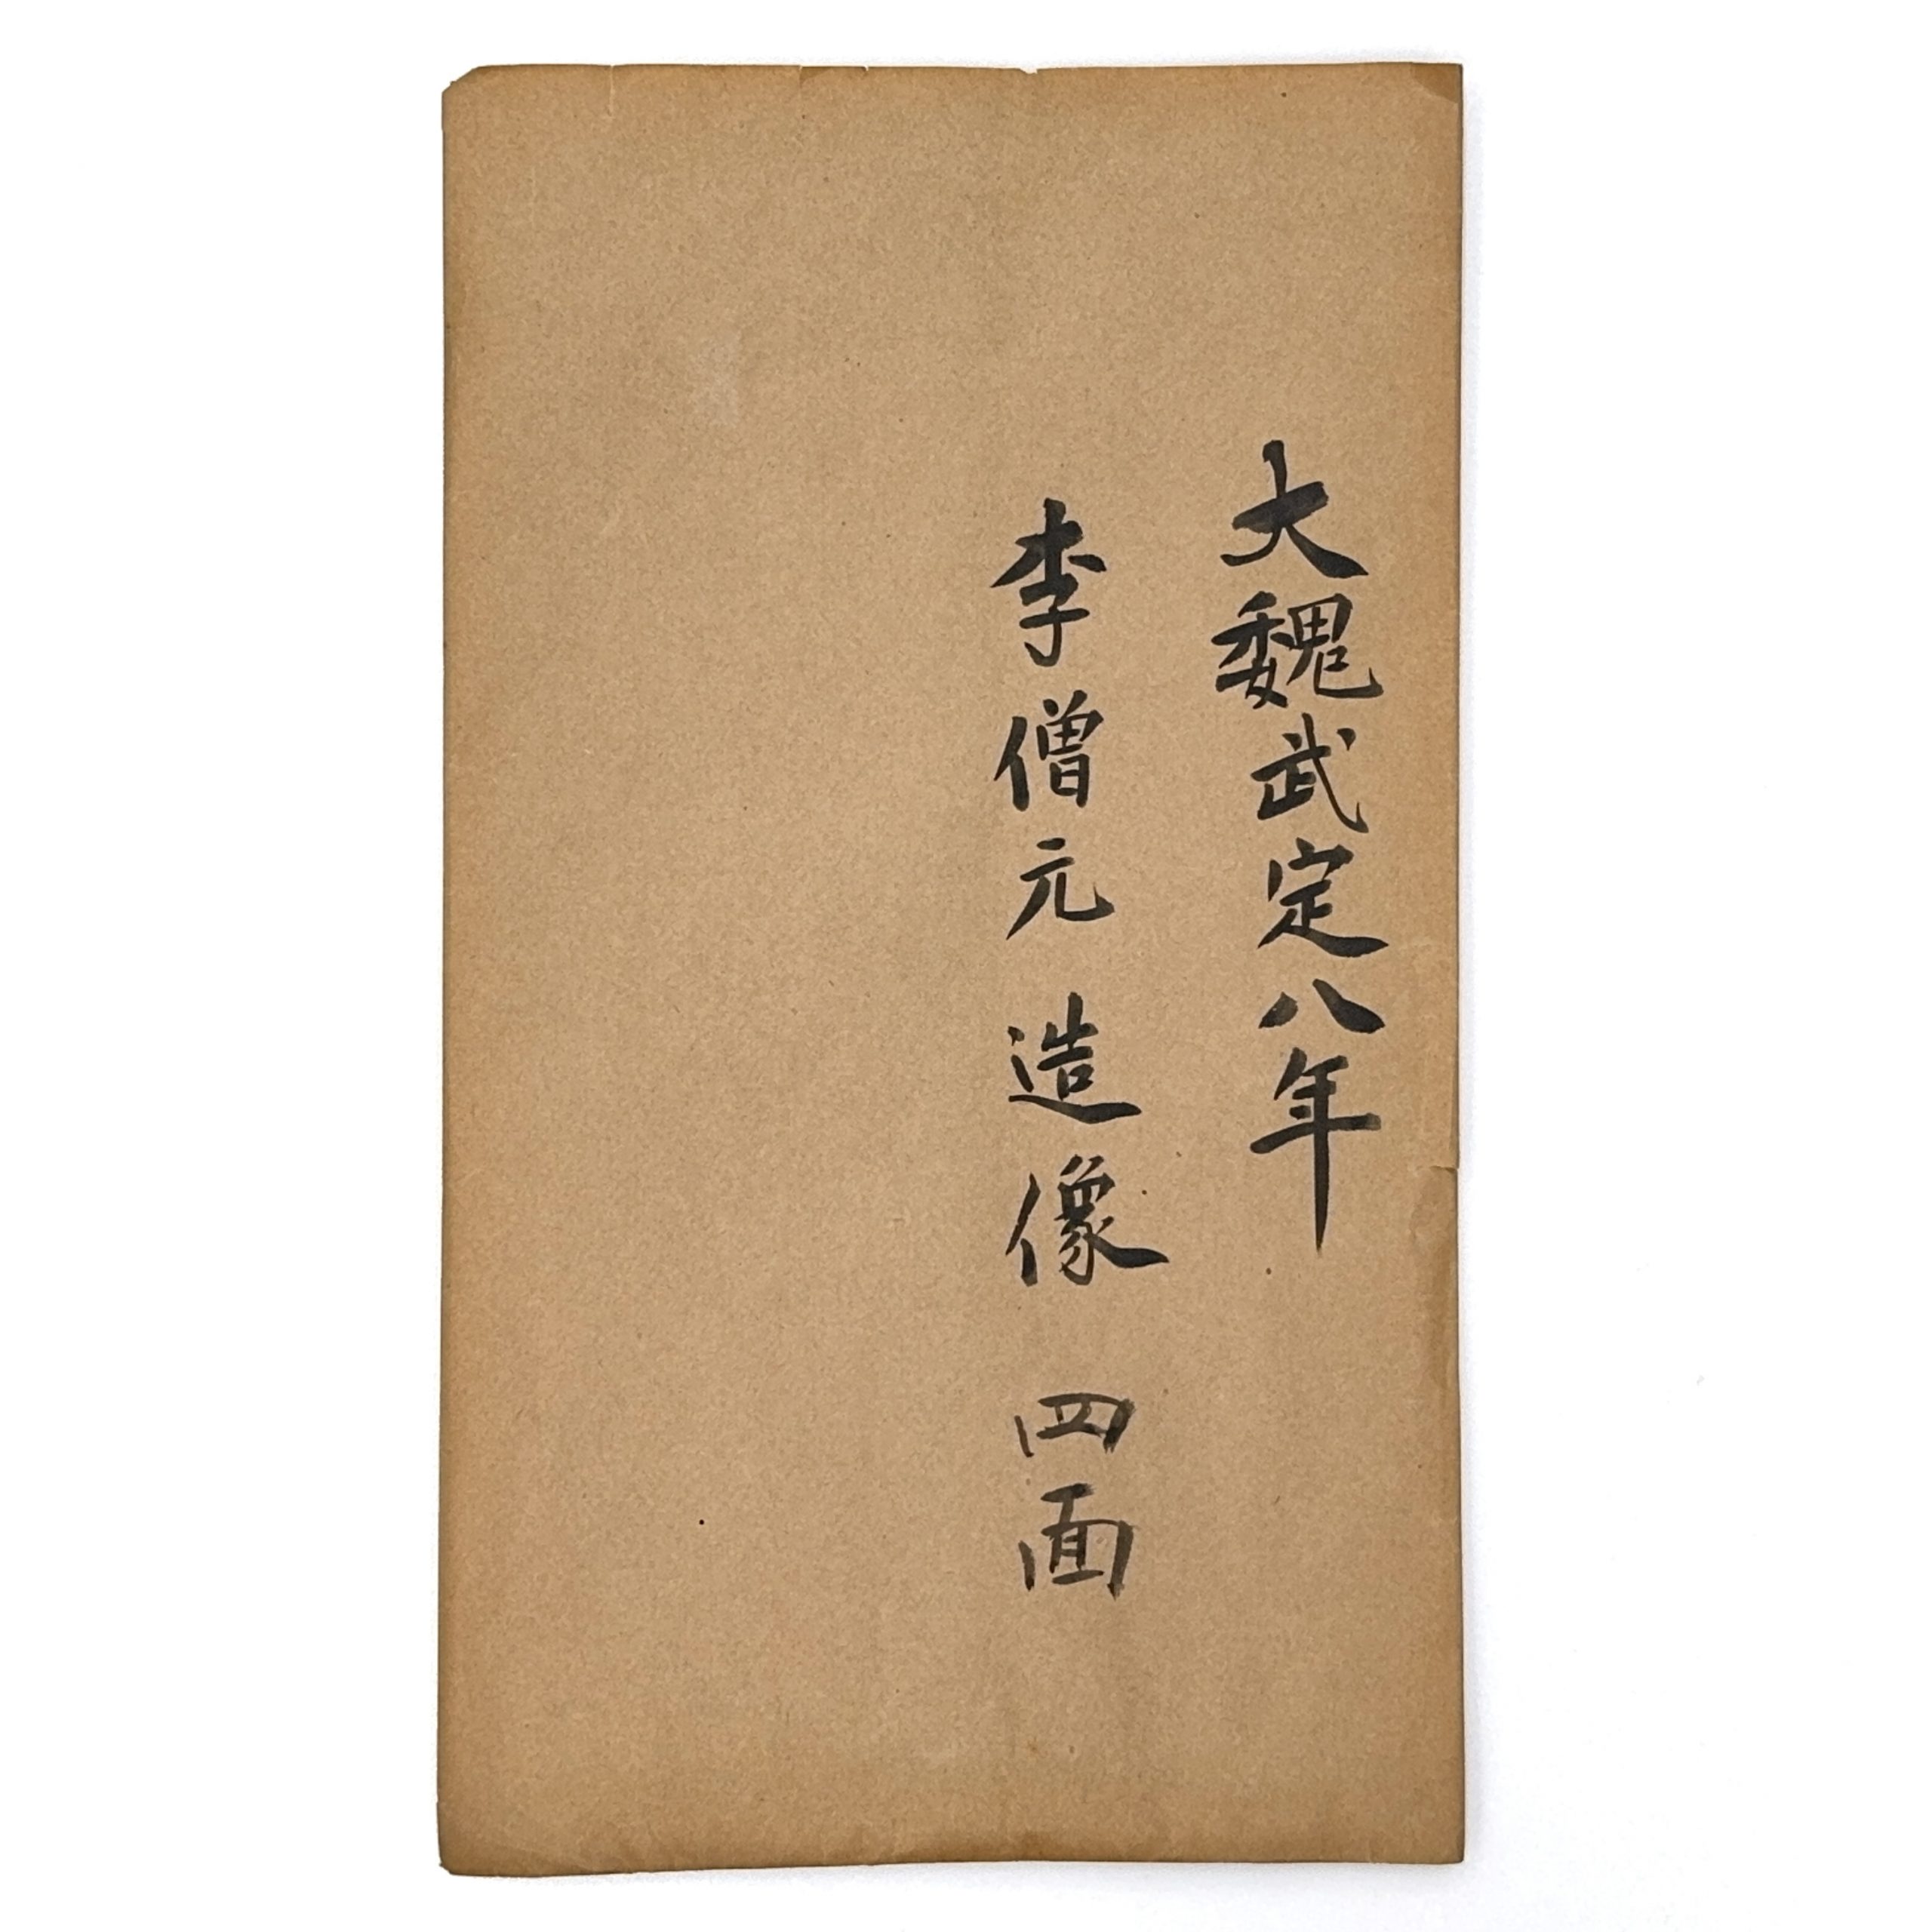 大魏武定八年
李僧元 造像 四面